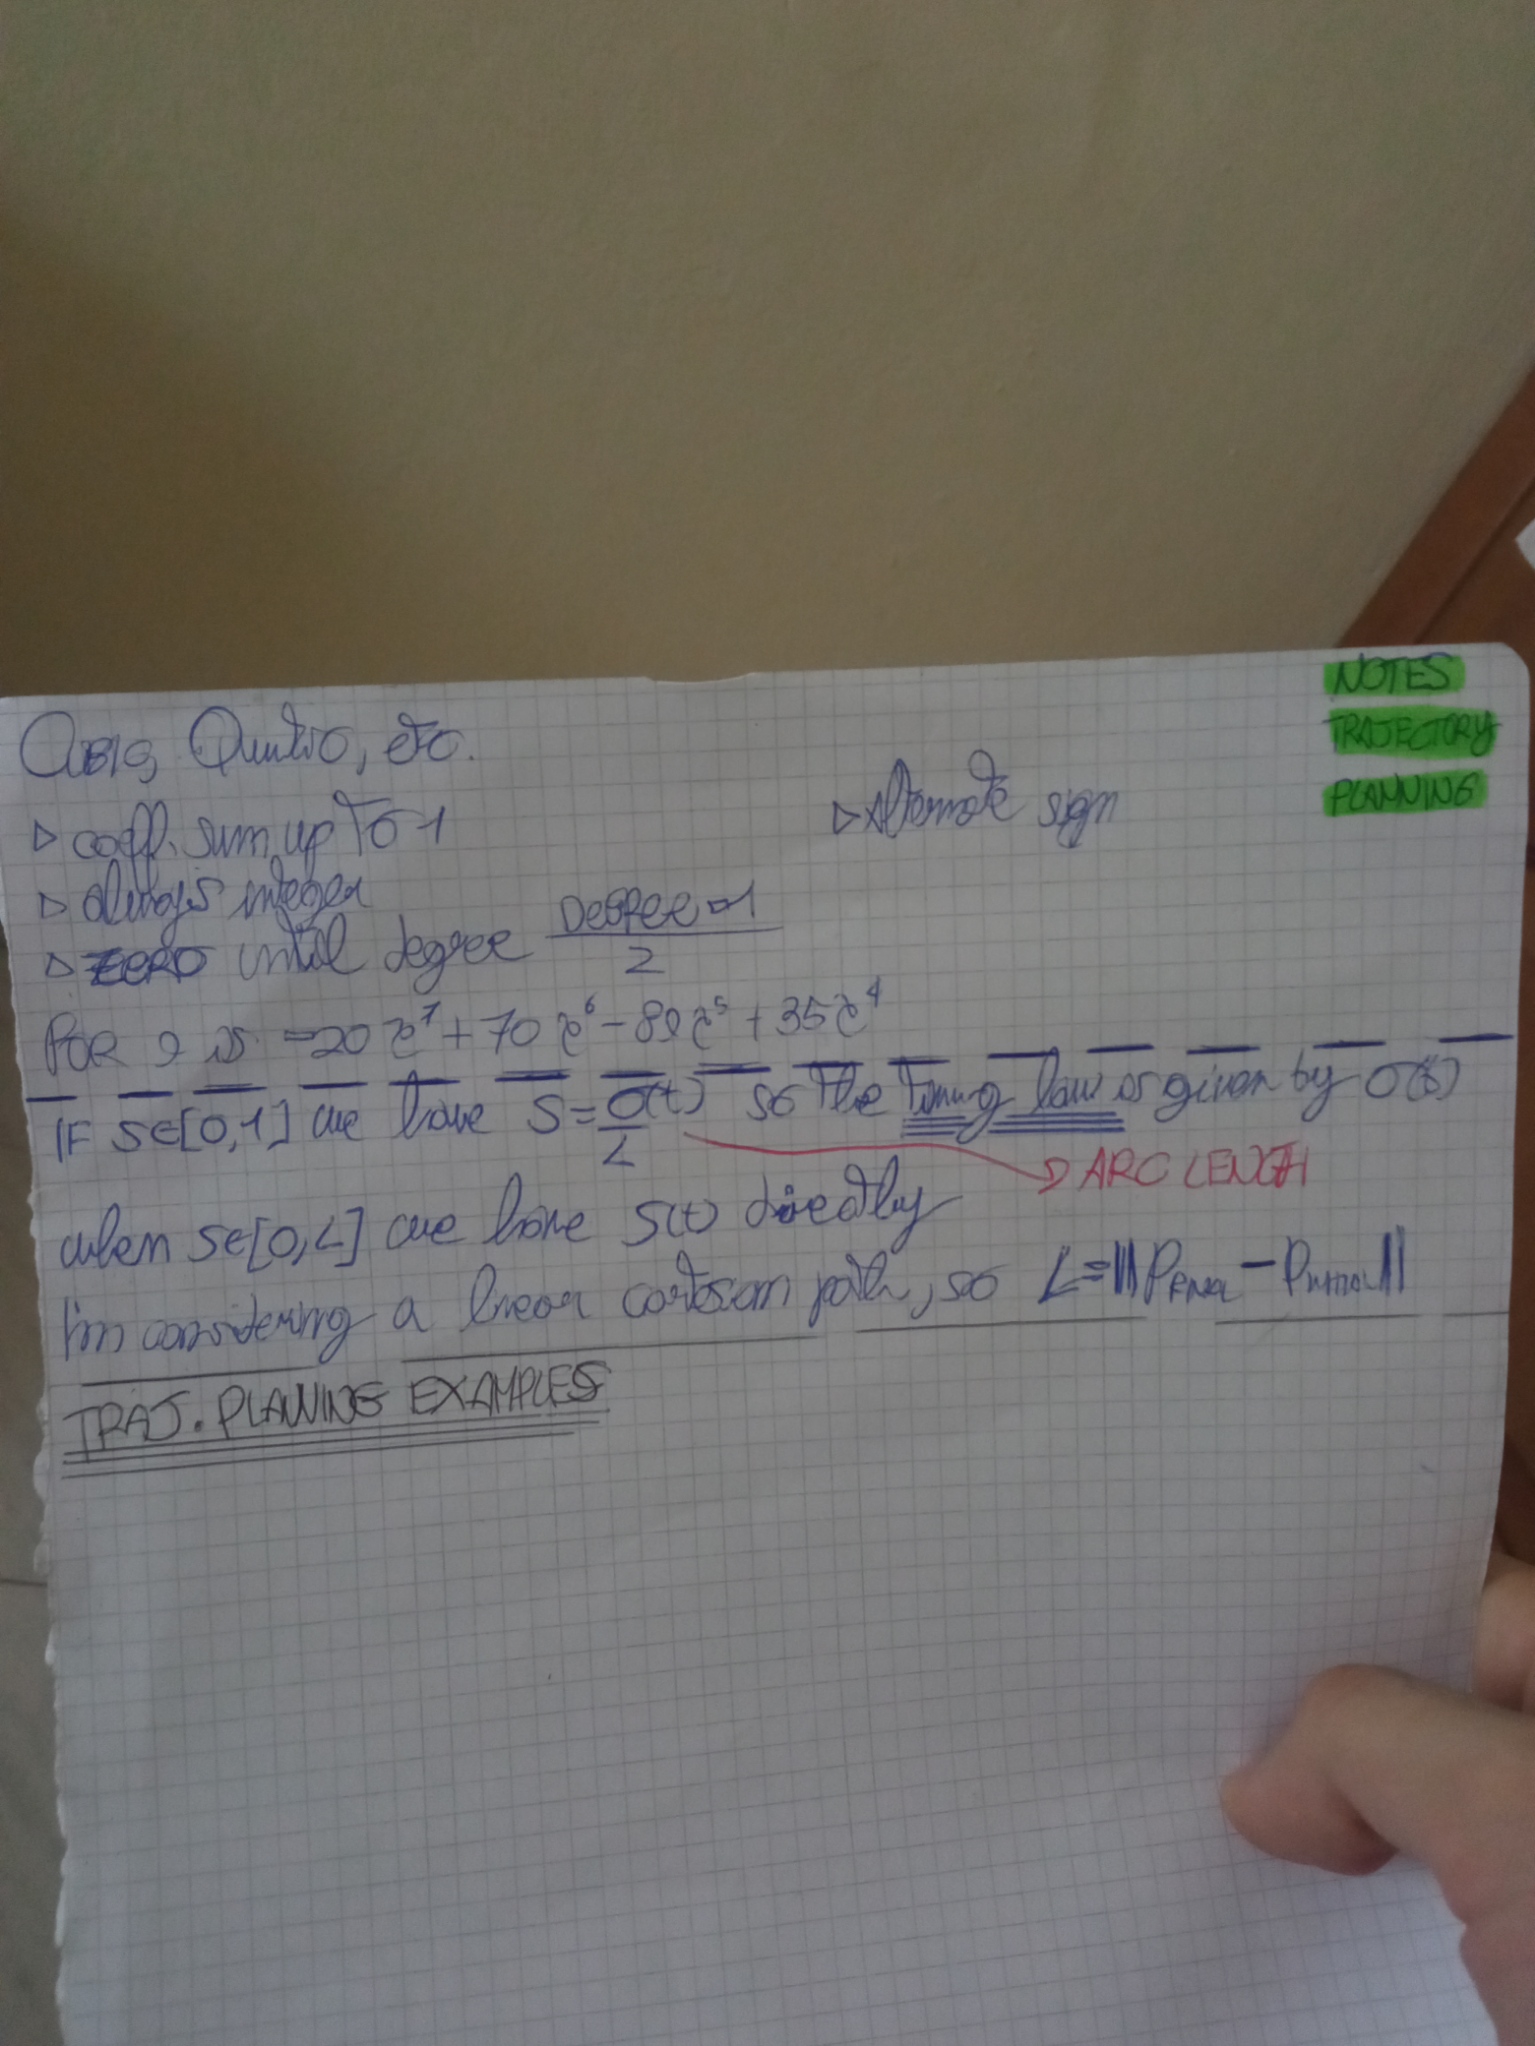 NOTES
TRAJECTORY
PLANNING
CUBIC, Quintic, etc.
▷ coeff. sum up To 1
▷ Alternate sign
▷ always integer
▷ ZERO until degree (Degree - 1)/2
FOR is -20τ⁷ + 70τ⁶ - 84τ⁵ + 35τ⁴
IF s∈[0,1] we have s = σ(t)/L so The Timing law is given by σ(t)
→ ARC LENGTH
when s∈[0,L] we have s(t) directly
I'm considering a linear cartesian path, so L = ||PFINAL - PINITIAL||
TRAJ. PLANNING EXAMPLES